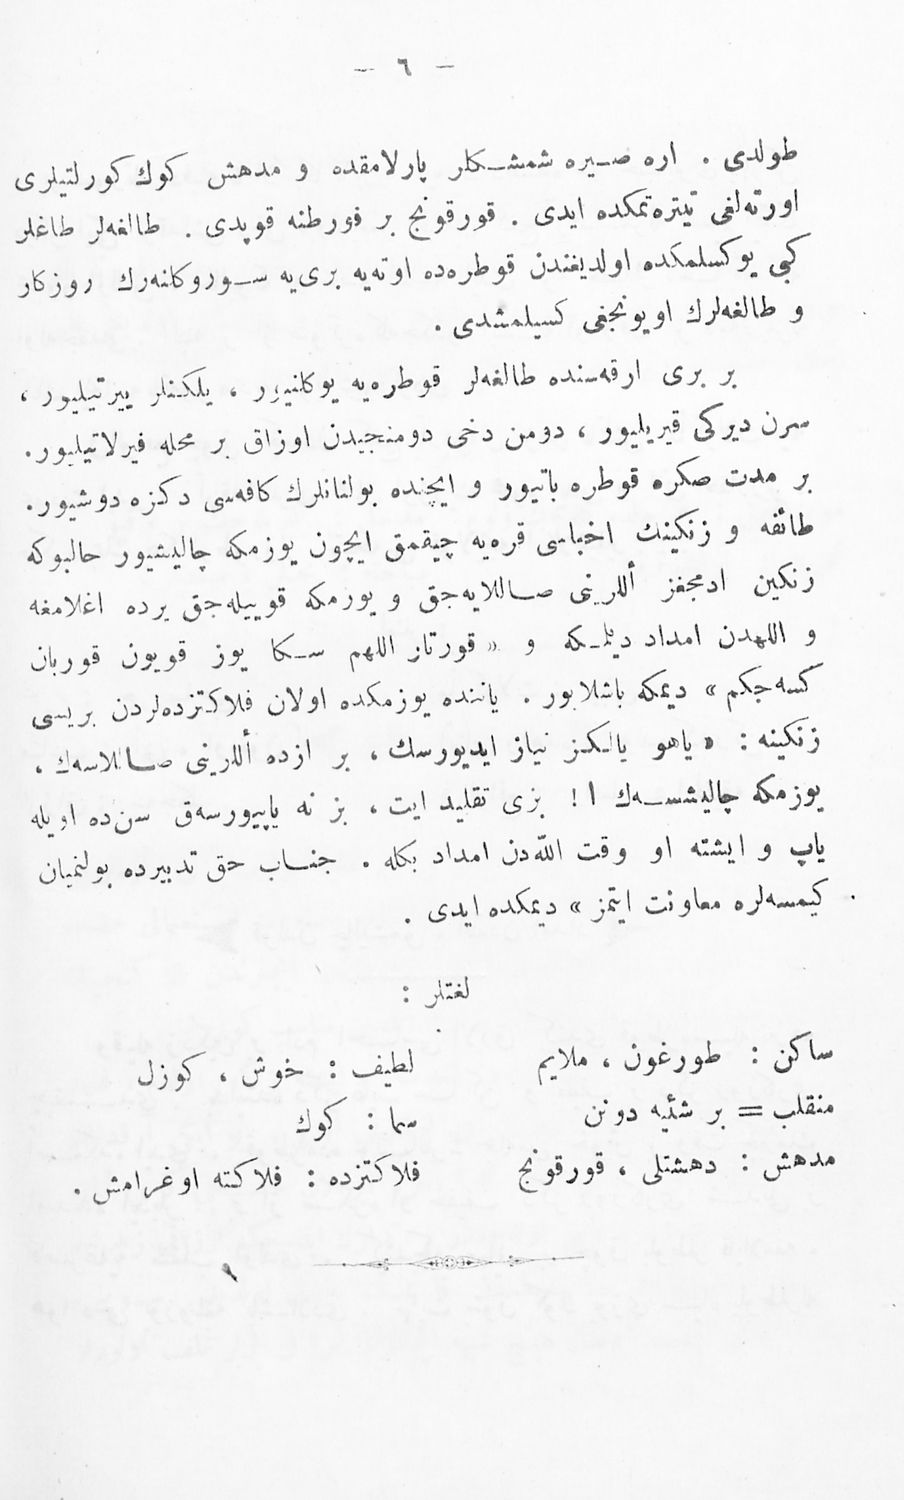 — ٦ —
طولدی . اره صـیره شمشـکلر پارلامقده و مدهش کوك کورلتیلری
اورته‌لغی تیتره‌تمکده ایدی . قورقونج بر فورطنه قوپدی . طالغه‌لر طاغلر
کبی یوکسلمکده اولدیغندن قوطره‌ده اوته‌یه بری‌یه سـوروکلنه‌رك روزکار
و طالغه‌لرك اویونجغی کسیلمشدی .
بر بری ارقه‌سنده طالغه‌لر قوطره‌یه یوکلنیور ، یلکنلر ییرتیلیور ،
سرن دیرکی قیریلیور ، دومن دخی دومنجیدن اوزاق بر محله فیرلاتیلیور.
بر مدت صکره قوطره باتیور و ایچنده بولنانلرك کافه‌سی دکزه دوشیور.
طائفه و زنکینك اخباسی قره‌یه چیقمق ایچون یوزمکه چالیشیور حالبوکه
زنکین ادمجغز أللرینی صـاللایه‌جق و یوزمکه قوییله‌جق یرده اغلامغه
و اللهدن امداد دیلمـکه و « قورتار اللهم سـکا یوز قویون قوربان
کسه‌جکم » دیمکه باشلایور . یاننده یوزمکده اولان فلاکتزده‌لردن بریسی
زنکینه : « یاهو یالـکز نیاز ایدیورسك ، بر ازده أللرینی صـاللاسه‌ك ،
یوزمکه چالیشسـه‌ك ا! بزی تقلید ایت ، بز نه یاپیورسه‌ق سن‌ده اویله
یاپ و ایشته او وقت الله‌دن امداد بکله . جنـاب حق تدبیرده بولنمیان
کیمسه‌لره معاونت ایتمز » دیمکده ایدی .
لغتلر :
ساکن : طورغون ، ملایم
لطیف : خوش ، کوزل
منقلب = بر شئیه دونن
سما : کوك
مدهش : دهشتلی ، قورقونج
فلاکتزده : فلاکته اوغرامش .